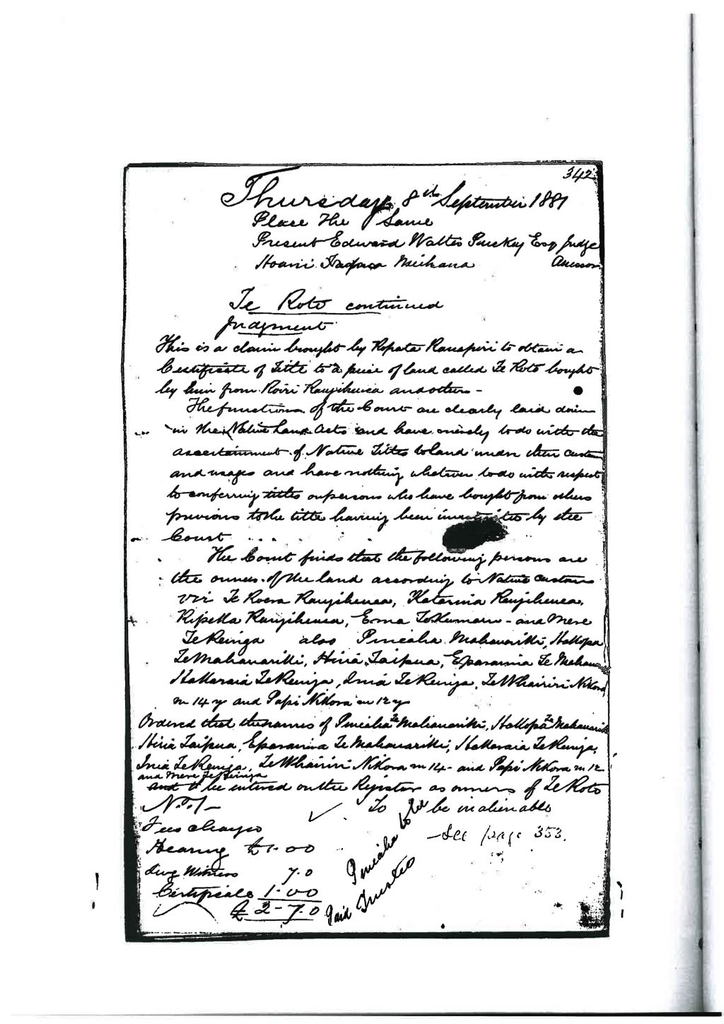 342
Thursday 8th September 1881
Place The Same
Present Edward Walter Puckey Esq Judge
Hoani Meihana Assessor
Te Roto continued
Judgment
This is a claim brought by Ropata Ranapiri to obtain a
Certificate of Title to a piece of land called Te Roto bought
by him from Roiri Rangiheuea and others -
The functions of the Court are clearly laid down
in the Native Land Acts and have merely to do with the
ascertainment of Native Titles to land under their customs
and usages and have nothing whatever to do with respect
to conferring titles on persons who have bought from others
previous to the title having been by the
Court
The Court finds that the following persons are
the owners of the land according to Native Custom
viz Te Roera Rangiheuea, Katarina Rangiheuea,
Ripeka Rangiheuea, Erena and Mere
Te Reinga also Pineaha Mahauariki, Hakopa
Te Mahauariki, Hiria Taipua, Eparaima Te Mahau
Hakaraia Te Reinga, Ema Te Reinga, Te Whairiri Nikora
m 14 y and Papi Nikora m 12 y
Ordered that the names of Pineaha Te Mahauariki, Hakopa Te Mahauariki
Hiria Taipua, Eparaima Te Mahauariki, Hakaraia Te Reinga,
Ema Te Reinga, Te Whairiri Nikora m 14 - and Papi Nikora m 12
and Mere Te Reinga
to be entered on the Register as owners of Te Roto
No. 1 -
To be inalienable
Fees charged
Hearing £1.00
- See page 353.
Swg Witness 7.0
Certificate 1.00
£ 2-7.0 Paid
Pineaha to be
Trustee